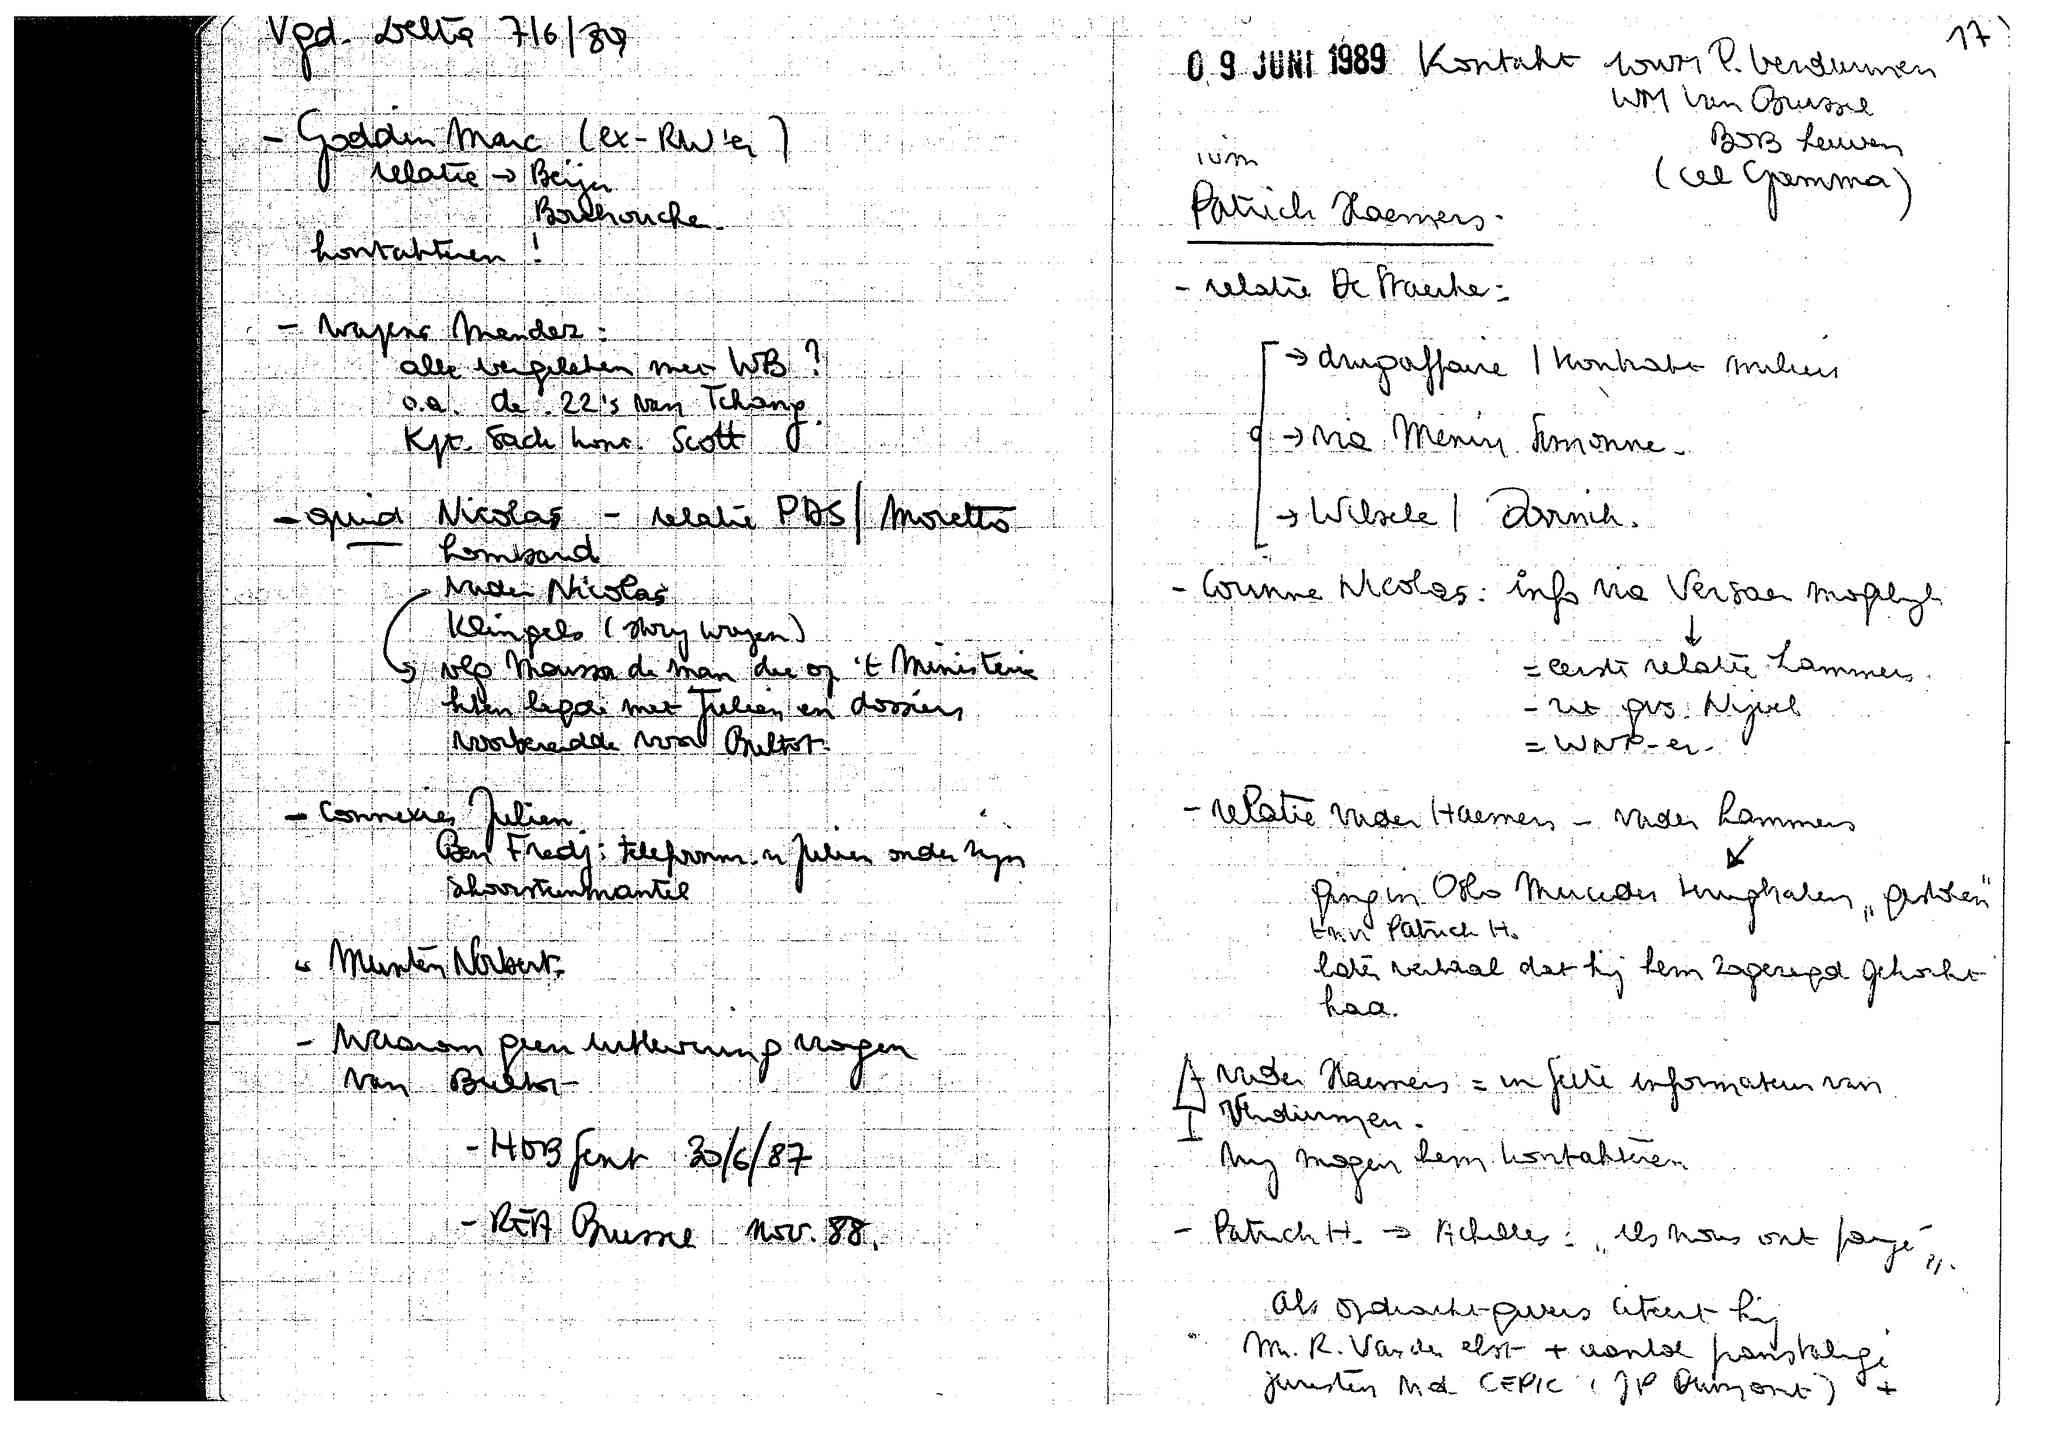 Vgd. Delta 7/6/89
- Goddin Marc (ex-RW'er)
relatie → Beijer
Bouhouche.
kontakteren !
- wapens Mendez:
alle vergeleken met WB ?
o.a. de .22's van Tchang.
Kpt. Sack Scott
- quid Nicolas - relatie PDS / Moretto
Lombard
vader Nicolas
Klingels (story wagen)
vlg Moussa de man die op 't Ministerie
klein legde met Julien en dossiers
voorbereidde voor Bultot.
- Connexies Julien
Ben Fredj: telefoonnr. v Julien onder zijn
schoorsteenmantel
- Munten Norbert.
- Waarom geen uitlevering vragen
van Bultot
- HOB Gent 30/6/87
- REA Brussel nov. 88.
17
09 JUNI 1989 Kontakt P. Verduinen
WM van Brussel
BOB Leuven
(cel Gamma)
ivm
Patrick Haemers.
- relatie De Staerke:
→ drugaffaire / kontrakt milieu
→ via Menin Simonne.
→ Wilsele / Doornik.
- Corinne Nicolas: info via Versaen mogelijk
↓
= eerste relatie Lammers.
- uit gvs. Nijvel
= WNP-er.
- relatie vader Haemers - vader Lammers
ging in Oslo Mercedes terughalen „gestolen"
t.n.v. Patrick H.
later verhaal dat hij hem zogezegd gekocht
had.
vader Haemers = in feite informateur van
Verduinen.
Wij mogen hem kontakteren
- Patrick H. → Achilles: „ils nous ont piégé".
Als opdrachtgevers citeert hij
Mr. R. Vander Elst + aantal franstalige
juristen v.d. CEPIC (JP Dumont) +